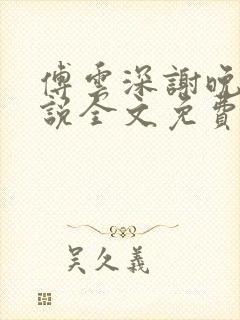 傅雲深謝晚
說全文免費
吴久義